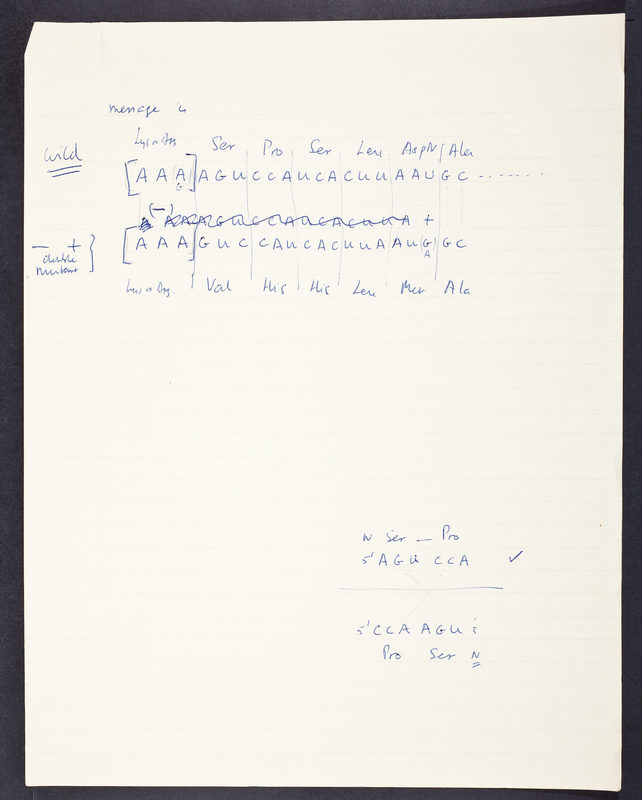 message is
Lys or Arg Ser Pro Ser Leu AspN Ala
Wild
[A A A] A G U C C A U C A C U U A A U G C - - - - - - -
G
(-)
A A A A G U C C A U C A C U U A +
- + double mutant } [A A A] G U C C A U C A C U U A A U G G C
A
Lys or Arg. Val His His Leu Met Ala
N Ser — Pro
5' A G U C C A ✓
5' C C A A G U
Pro Ser N